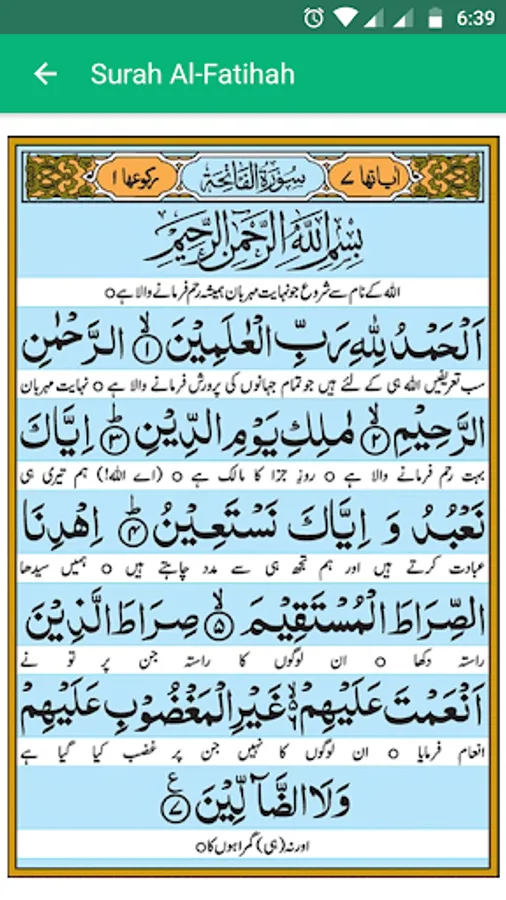 6:39
Surah Al-Fatihah
اٰیاتھا ٧ سُوْرَةُ الْفَاتِحَةِ رکوعھا ١
بِسْمِ اللّٰهِ الرَّحْمٰنِ الرَّحِيْمِ
اللہ کے نام سے شروع جو نہایت مہربان ہمیشہ رحم فرمانے والا ہے ○
اَلْحَمْدُ لِلّٰهِ رَبِّ الْعٰلَمِيْنَ ۙ﴿١﴾ الرَّحْمٰنِ
سب تعریفیں اللہ ہی کے لئے ہیں جو تمام جہانوں کی پرورش فرمانے والا ہے ○ نہایت مہربان
الرَّحِيْمِ ۙ﴿٢﴾ مٰلِكِ يَوْمِ الدِّيْنِ ؕ﴿٣﴾ اِيَّاكَ
بہت رحم فرمانے والا ہے ○ روزِ جزا کا مالک ہے ○ (اے اللہ!) ہم تیری ہی
نَعْبُدُ وَ اِيَّاكَ نَسْتَعِيْنُ ؕ﴿۴﴾ اِهْدِنَا
عبادت کرتے ہیں اور ہم تجھ ہی سے مدد چاہتے ہیں ○ ہمیں سیدھا
الصِّرَاطَ الْمُسْتَقِيْمَ ۙ﴿۵﴾ صِرَاطَ الَّذِيْنَ
راستہ دکھا ○ ان لوگوں کا راستہ جن پر تو نے
اَنْعَمْتَ عَلَيْهِمْ ۙ﴿۶﴾ غَيْرِ الْمَغْضُوْبِ عَلَيْهِمْ
انعام فرمایا ○ ان لوگوں کا نہیں جن پر غضب کیا گیا ہے
وَلَا الضَّآلِّيْنَ ﴿٧﴾ ع
اور نہ (ہی) گمراہوں کا ○